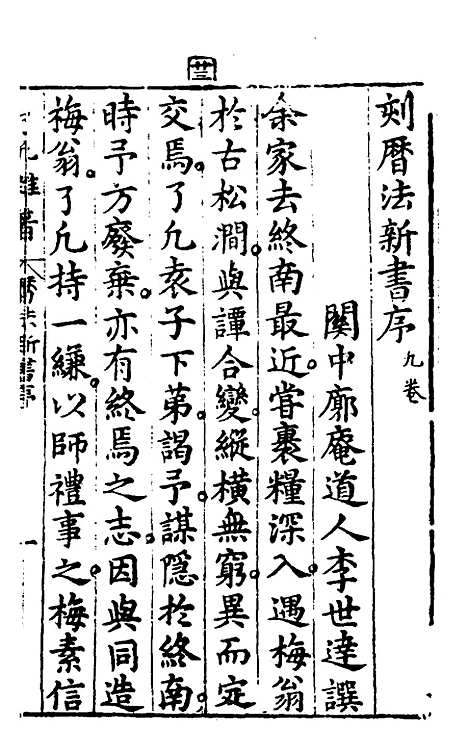 廿三
刻曆法新書序 九卷
關中廓庵道人李世達譔
余家去終南最近嘗裹糧深入。遇梅翁
於古松澗。與譚合變縱橫無窮。異而定
交焉。了凡袁子下第謁予。謀隱於終南。
時予方廢棄。亦有終焉之志。因與同造
梅翁。了凡持一縑。以師禮事之。梅素信
了凡雜著 曆法新書序 一